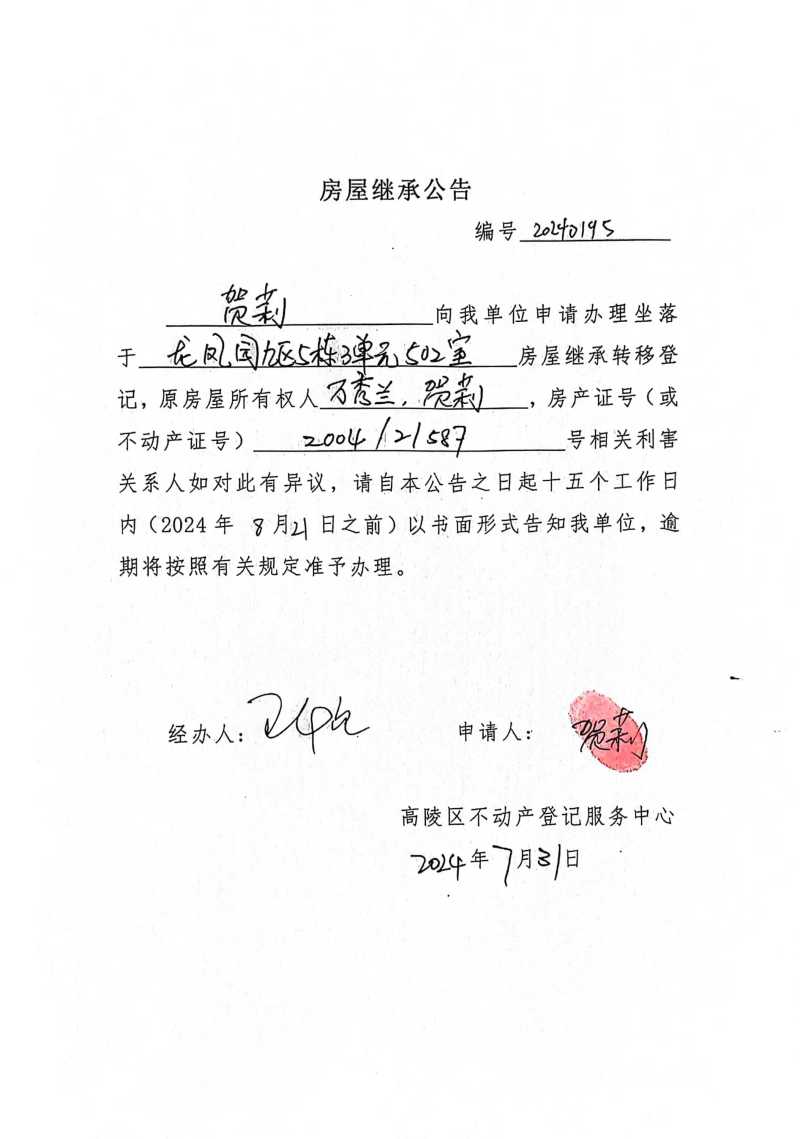 房屋继承公告
编号 20240195
贺莉 向我单位申请办理坐落
于 龙凤园九区5栋3单元502室 房屋继承转移登
记，原房屋所有权人 万秀兰、贺莉 ，房产证号（或
不动产证号） 2004121587 号相关利害
关系人如对此有异议，请自本公告之日起十五个工作日
内（2024年 8月21日之前）以书面形式告知我单位，逾
期将按照有关规定准予办理。
经办人： 申请人： 贺莉
高陵区不动产登记服务中心
2024年7月31日